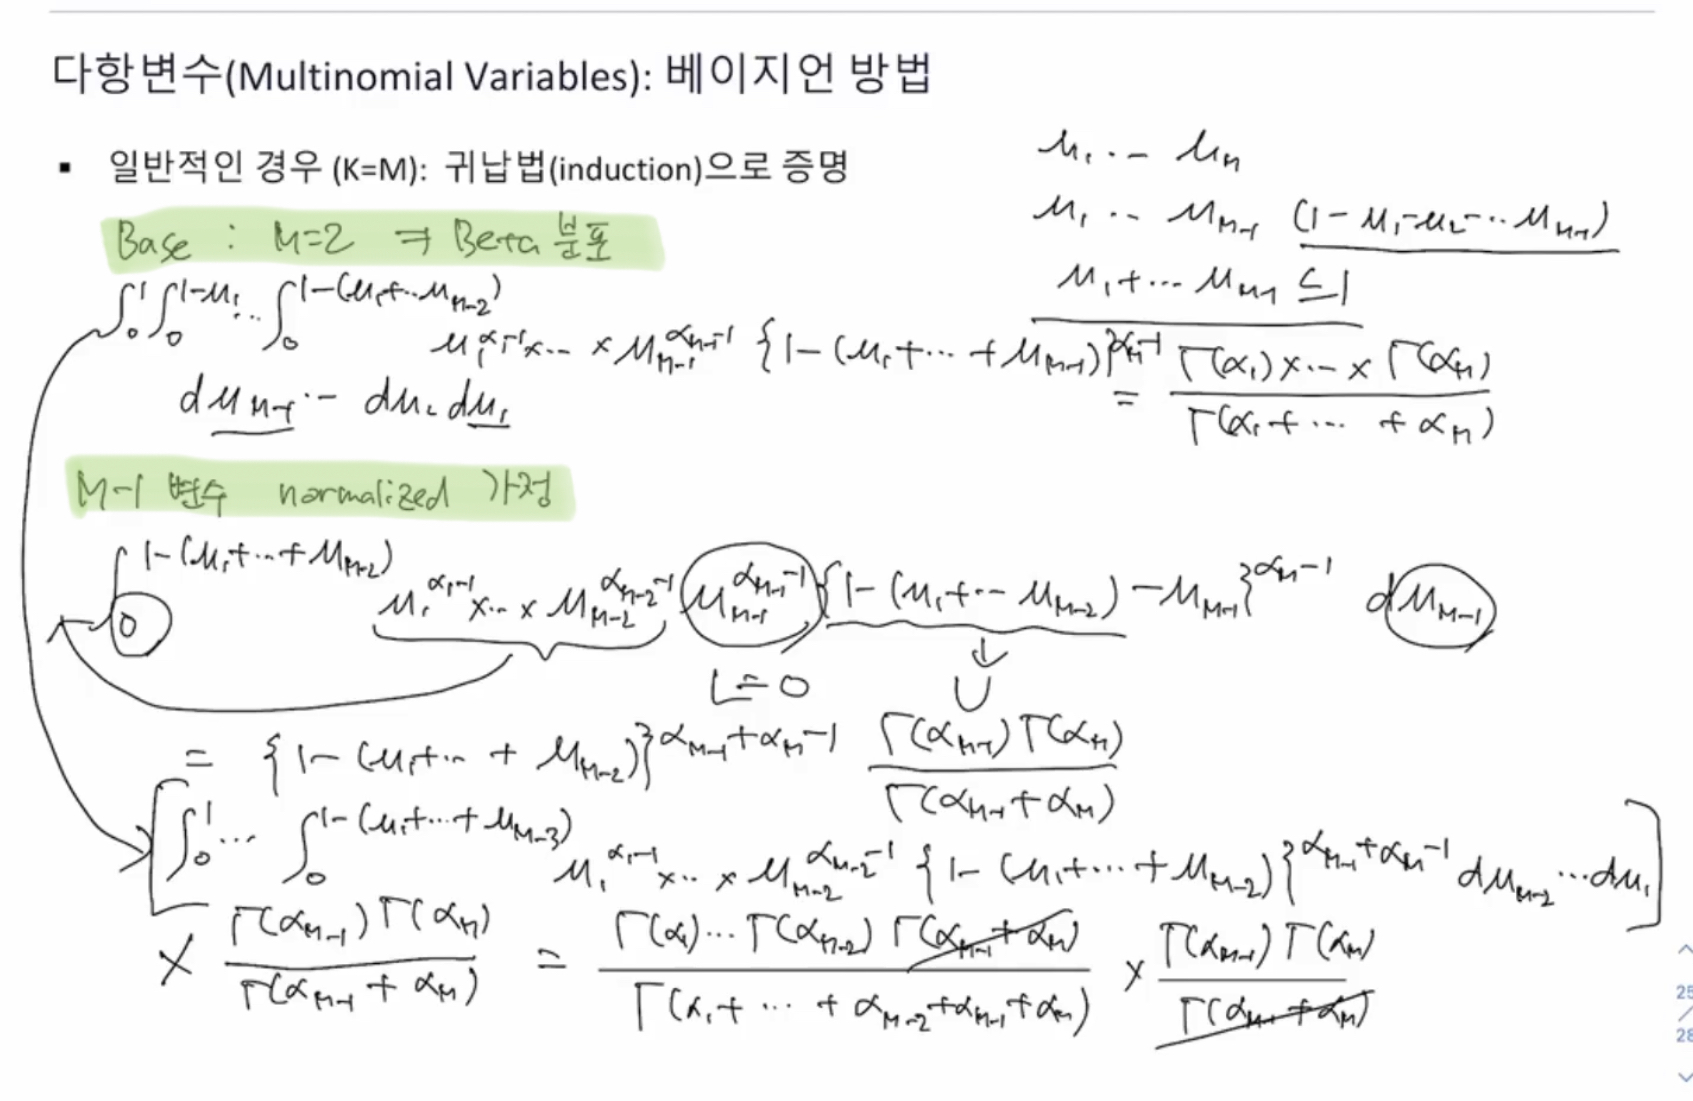 다항변수(Multinomial Variables): 베이지언 방법
▪ 일반적인 경우 (K=M): 귀납법(induction)으로 증명
μ₁ ·– μ_M
μ₁ ·· μ_{M-1} (1-μ₁-μ₂-··μ_{M-1})
μ₁+··· μ_{M-1} ≤ 1
Base : M=2 ⇒ Beta 분포
∫₀¹ ∫₀^{1-μ₁} ··· ∫₀^{1-(μ₁+··μ_{M-2})} μ₁^{α₁-1} ×··· × μ_{M-1}^{α_{M-1}-1} {1-(μ₁+··· +μ_{M-1})}^{α_M-1}
dμ_{M-1} ·– dμ₂ dμ₁ = Γ(α₁)×·–× Γ(α_M) / Γ(α₁+ ··· +α_M)
M-1 변수 normalized 가정
∫₀^{1-(μ₁+···+μ_{M-2})} μ₁^{α₁-1} ×··× μ_{M-2}^{α_{M-2}-1} μ_{M-1}^{α_{M-1}-1} {1-(μ₁+·– μ_{M-2}) -μ_{M-1}}^{α_M-1} dμ_{M-1}
L=0 ↓ U
= {1-(μ₁+·· + μ_{M-2})}^{α_{M-1}+α_M-1} Γ(α_{M-1})Γ(α_M) / Γ(α_{M-1}+α_M)
[∫₀¹ ··· ∫₀^{1-(μ₁+···+μ_{M-3})} μ₁^{α₁-1} ×··× μ_{M-2}^{α_{M-2}-1} {1-(μ₁+···+μ_{M-2})}^{α_{M-1}+α_M-1} dμ_{M-2} ···dμ₁]
× Γ(α_{M-1})Γ(α_M) / Γ(α_{M-1}+α_M) = Γ(α₁)··· Γ(α_{M-2}) Γ(α_{M-1}+α_M) / Γ(α₁+ ··· + α_{M-2}+α_{M-1}+α_M) × Γ(α_{M-1})Γ(α_M) / Γ(α_{M-1}+α_M)
25
/
28